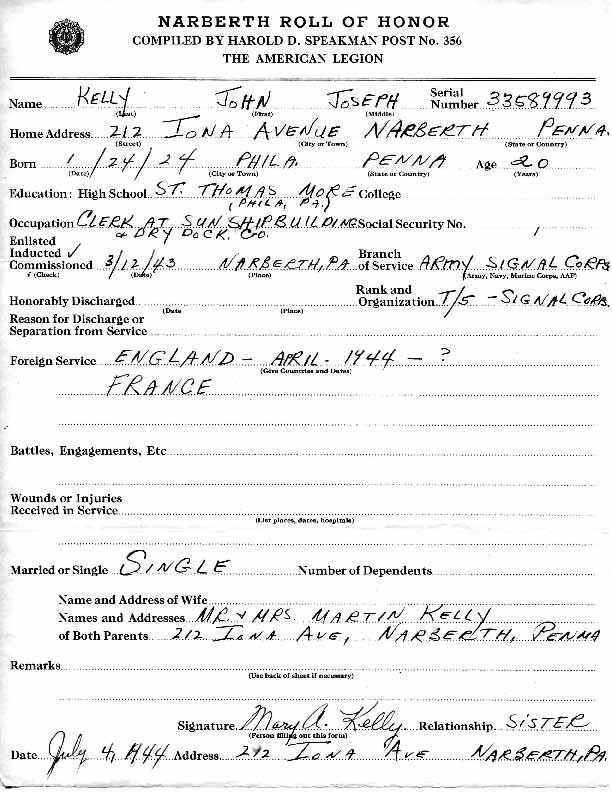 NARBERTH ROLL OF HONOR
COMPILED BY HAROLD D. SPEAKMAN POST No. 356
THE AMERICAN LEGION
Name KELLY JOHN JOSEPH Serial Number 33589993
(Last) (First) (Middle)
Home Address 212 IONA AVENUE NARBERTH PENNA.
(Street) (City or Town) (State or Country)
Born 1/24/24 PHILA. PENNA Age 20
(Date) (City or Town) (State or Country) (Years)
Education: High School ST. THOMAS MORE College
(PHILA, PA.)
Occupation CLERK AT SUN SHIPBUILDING Social Security No.
& DRY DOCK. CO.
Enlisted
Inducted ✓ Branch
Commissioned 3/12/43 NARBERTH, PA of Service ARMY SIGNAL CORPS
√ (Check) (Date) (Place) (Army, Navy, Marine Corps, AAF)
Rank and
Honorably Discharged Organization T/5 - SIGNAL CORPS.
(Date (Place)
Reason for Discharge or
Separation from Service
Foreign Service ENGLAND - APRIL - 1944 - ?
(Give Countries and Dates)
FRANCE
Battles, Engagements, Etc
Wounds or Injuries
Received in Service
(List places, dates, hospitals)
Married or Single SINGLE Number of Dependents
Name and Address of Wife
Names and Addresses MR. & MRS. MARTIN KELLY
of Both Parents 212 IONA AVE, NARBERTH, PENNA
Remarks
(Use back of sheet if necessary)
Signature Mary A. Kelly Relationship SISTER
(Person filling out this form)
Date July 4, 1944 Address 212 IONA AVE NARBERTH, PA.